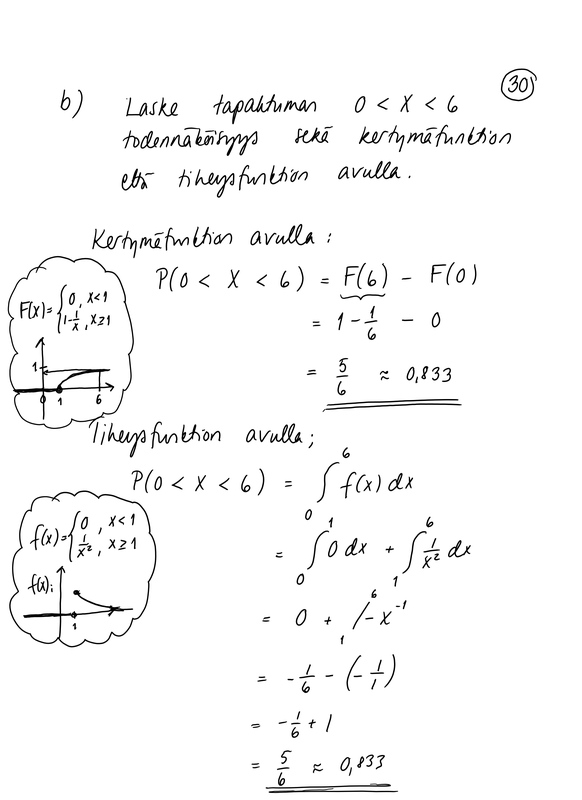 30)
b) Laske tapahtuman 0 < X < 6
todennäköisyys sekä kertymäfunktion
että tiheysfunktion avulla.
Kertymäfunktion avulla:
F(x)= { 0, x<1
1-1/x, x≥1
1
0 1 6
P(0 < X < 6) = F(6) - F(0)
= 1 - 1/6 - 0
= 5/6 ≈ 0,833
Tiheysfunktion avulla;
f(x)= { 0, x<1
1/x², x≥1
f(x):
1
P(0 < X < 6) = ∫₀⁶ f(x) dx
= ∫₀¹ 0 dx + ∫₁⁶ 1/x² dx
= 0 + ₁/⁶ -x⁻¹
= -1/6 - (-1/1)
= -1/6 + 1
= 5/6 ≈ 0,833